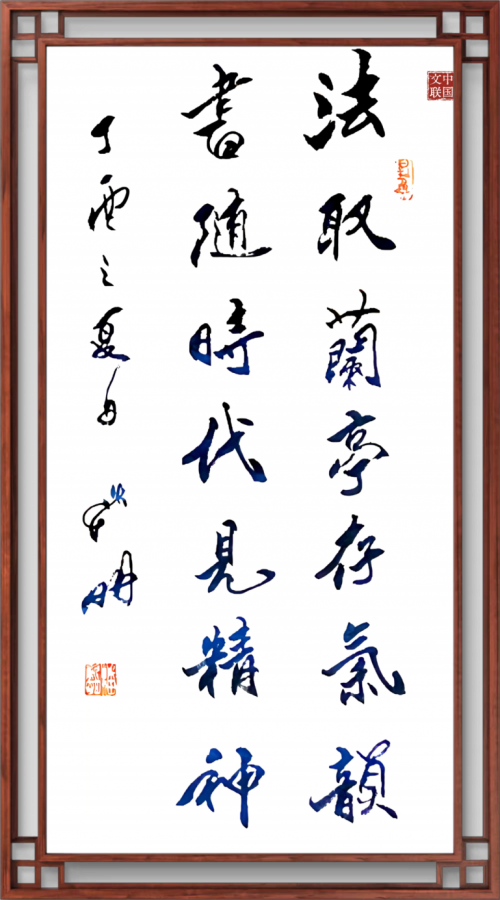 中国
文联
法取蘭亭存氣韻
書隨時代見精神
丁酉之夏月